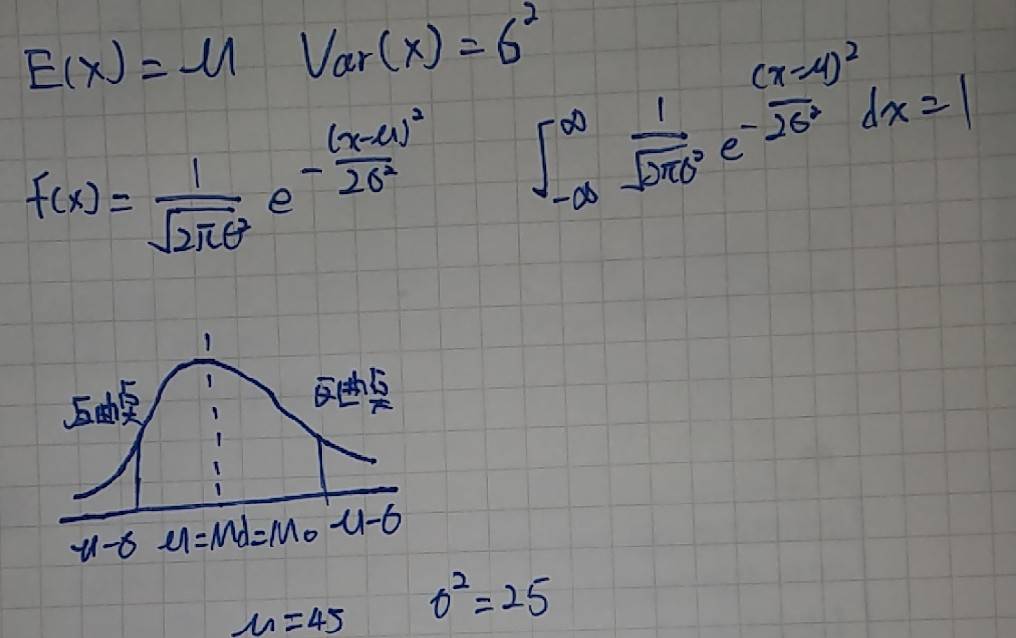 E(x) = μ Var(x) = σ²
f(x) = 1/√(2πσ²) e^(-(x-μ)²/2σ²) ∫_{-∞}^{∞} 1/√(2πσ²) e^(-(x-μ)²/2σ²) dx = 1
反曲点 反曲点
μ-σ μ=Md=Mo μ-σ
μ=45 σ²=25